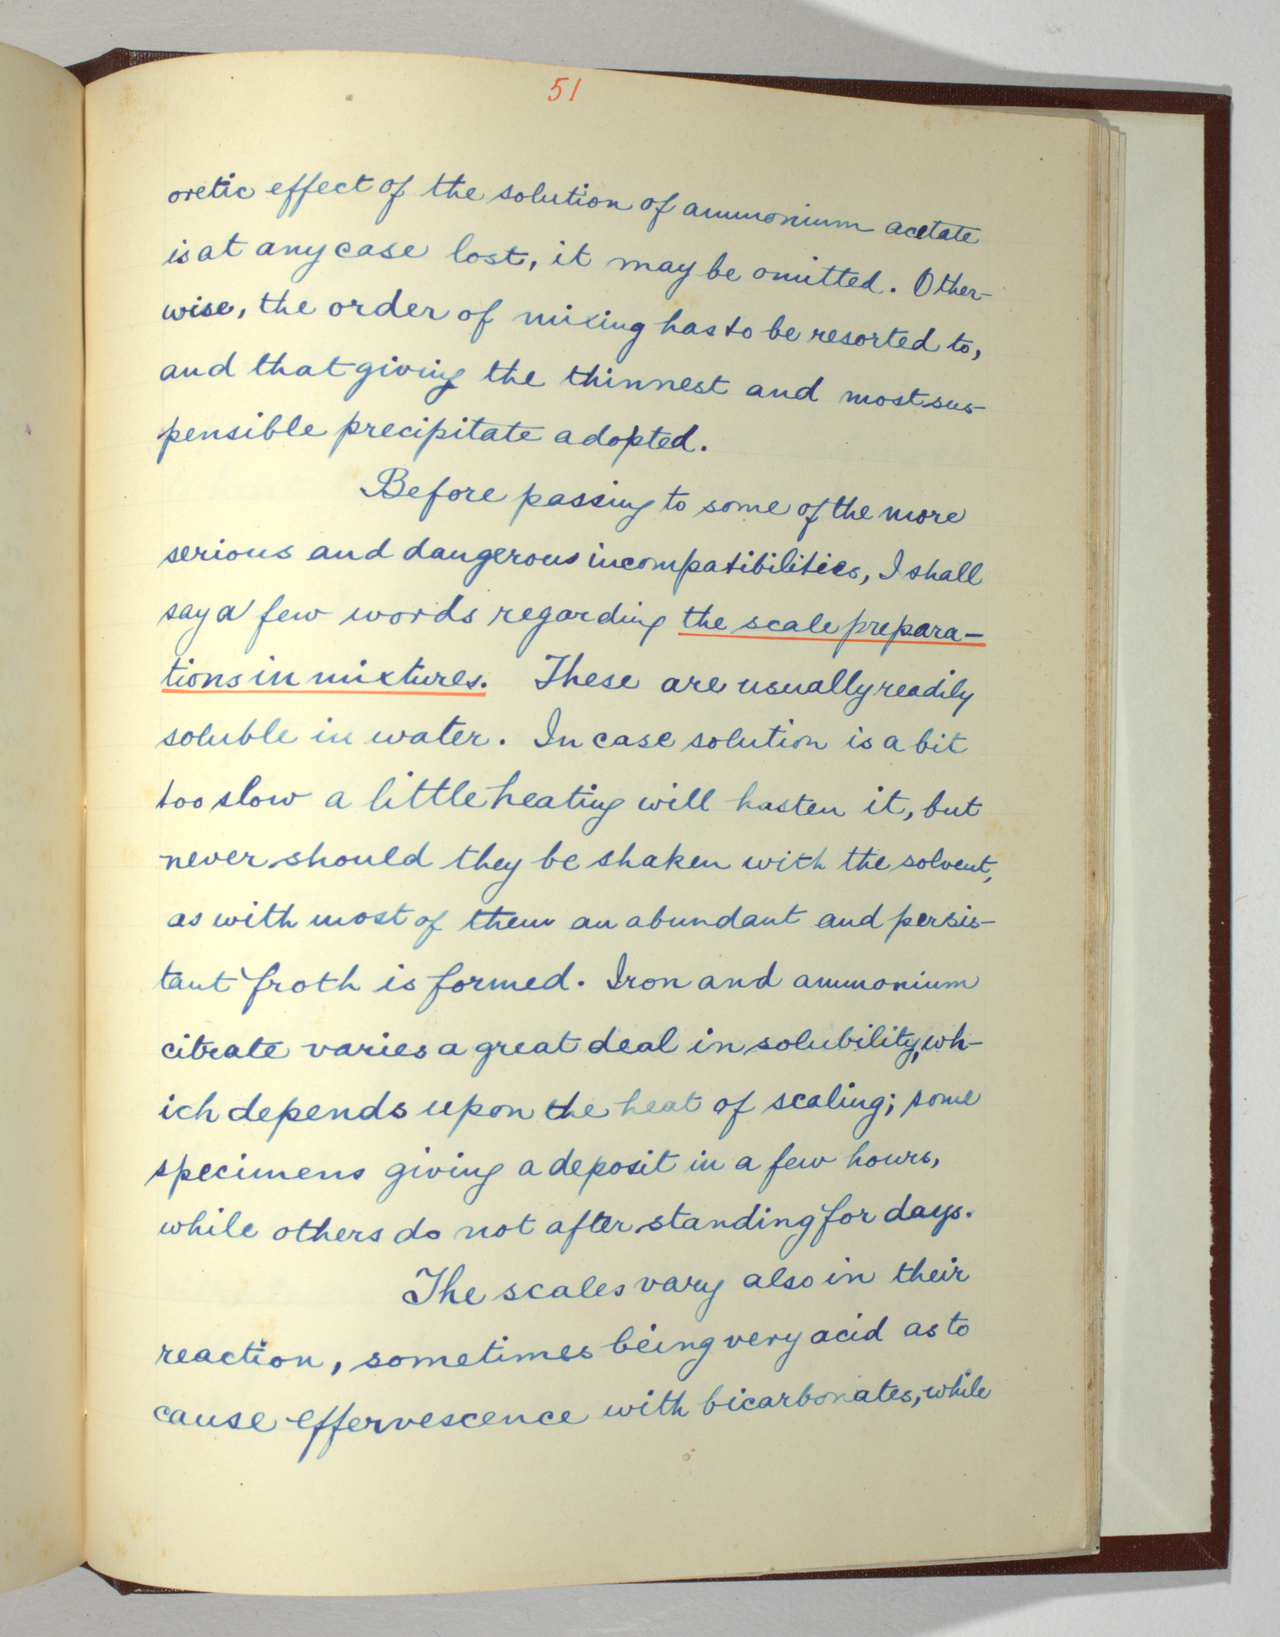 51
oretic effect of the solution of ammonium acetate
is at any case lost, it may be omitted. Other-
wise, the order of mixing has to be resorted to,
and that giving the thinnest and most sus-
pensible precipitate adopted.
Before passing to some of the more
serious and dangerous incompatibilities, I shall
say a few words regarding the scale prepara-
tions in mixtures. These are usually readily
soluble in water. In case solution is a bit
too slow a little heating will hasten it, but
never should they be shaken with the solvent,
as with most of them an abundant and persis-
tant froth is formed. Iron and ammonium
citrate varies a great deal in solubility, wh-
ich depends upon the heat of scaling; some
specimens giving a deposit in a few hours,
while others do not after standing for days.
The scales vary also in their
reaction, sometimes being very acid as to
cause effervescence with bicarbonates, while